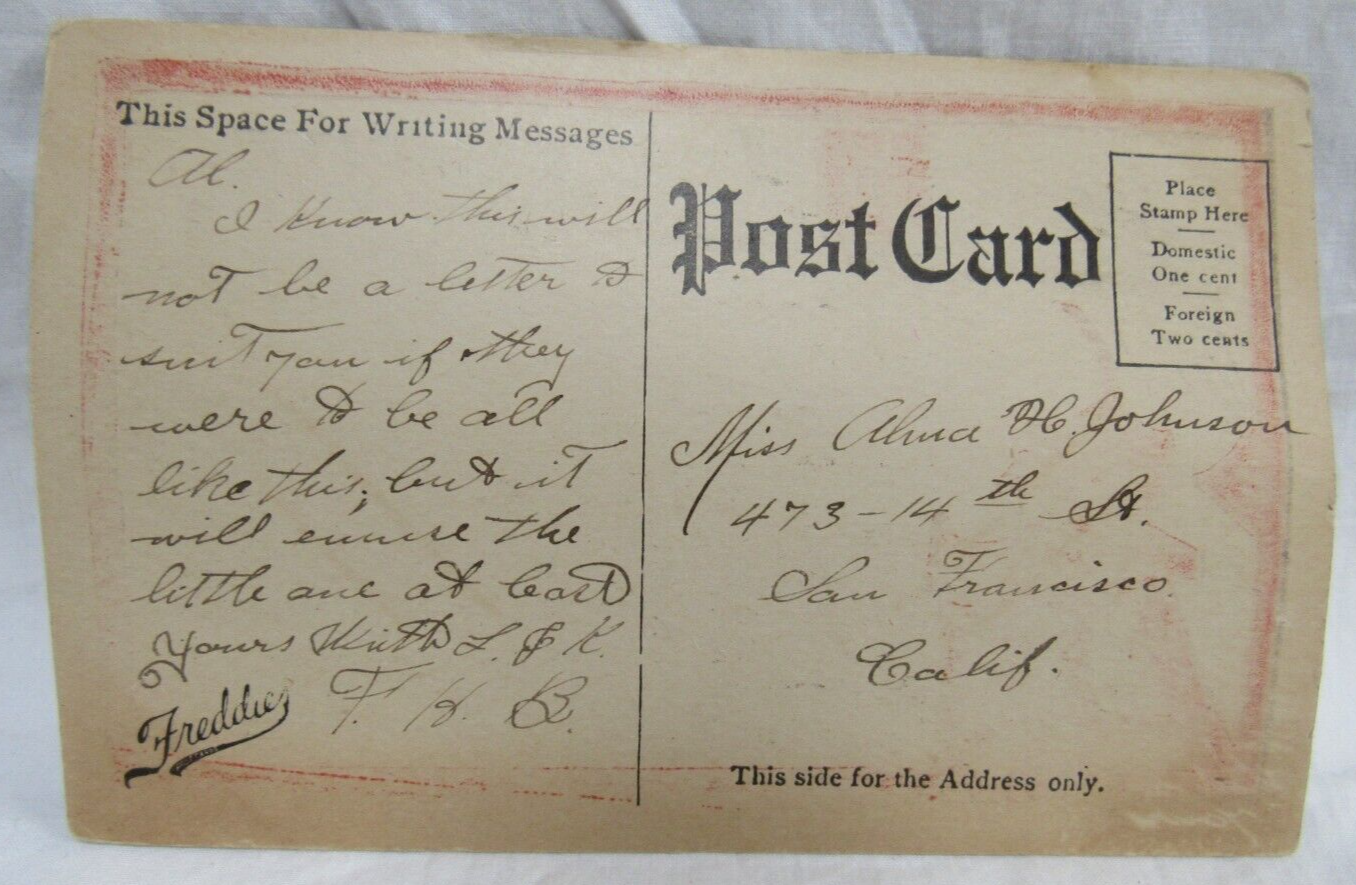 This Space For Writing Messages
Al.
I know this will
not be a letter to
suit you if they
were to be all
like this; but it
will emuse the
little one at least
Yours With L. & K.
F. H. B.
Freddie
Post Card
Place
Stamp Here
Domestic
One cent
Foreign
Two cents
Miss Alma H. Johnson
473-14th St.
San Francisco.
Calif.
This side for the Address only.